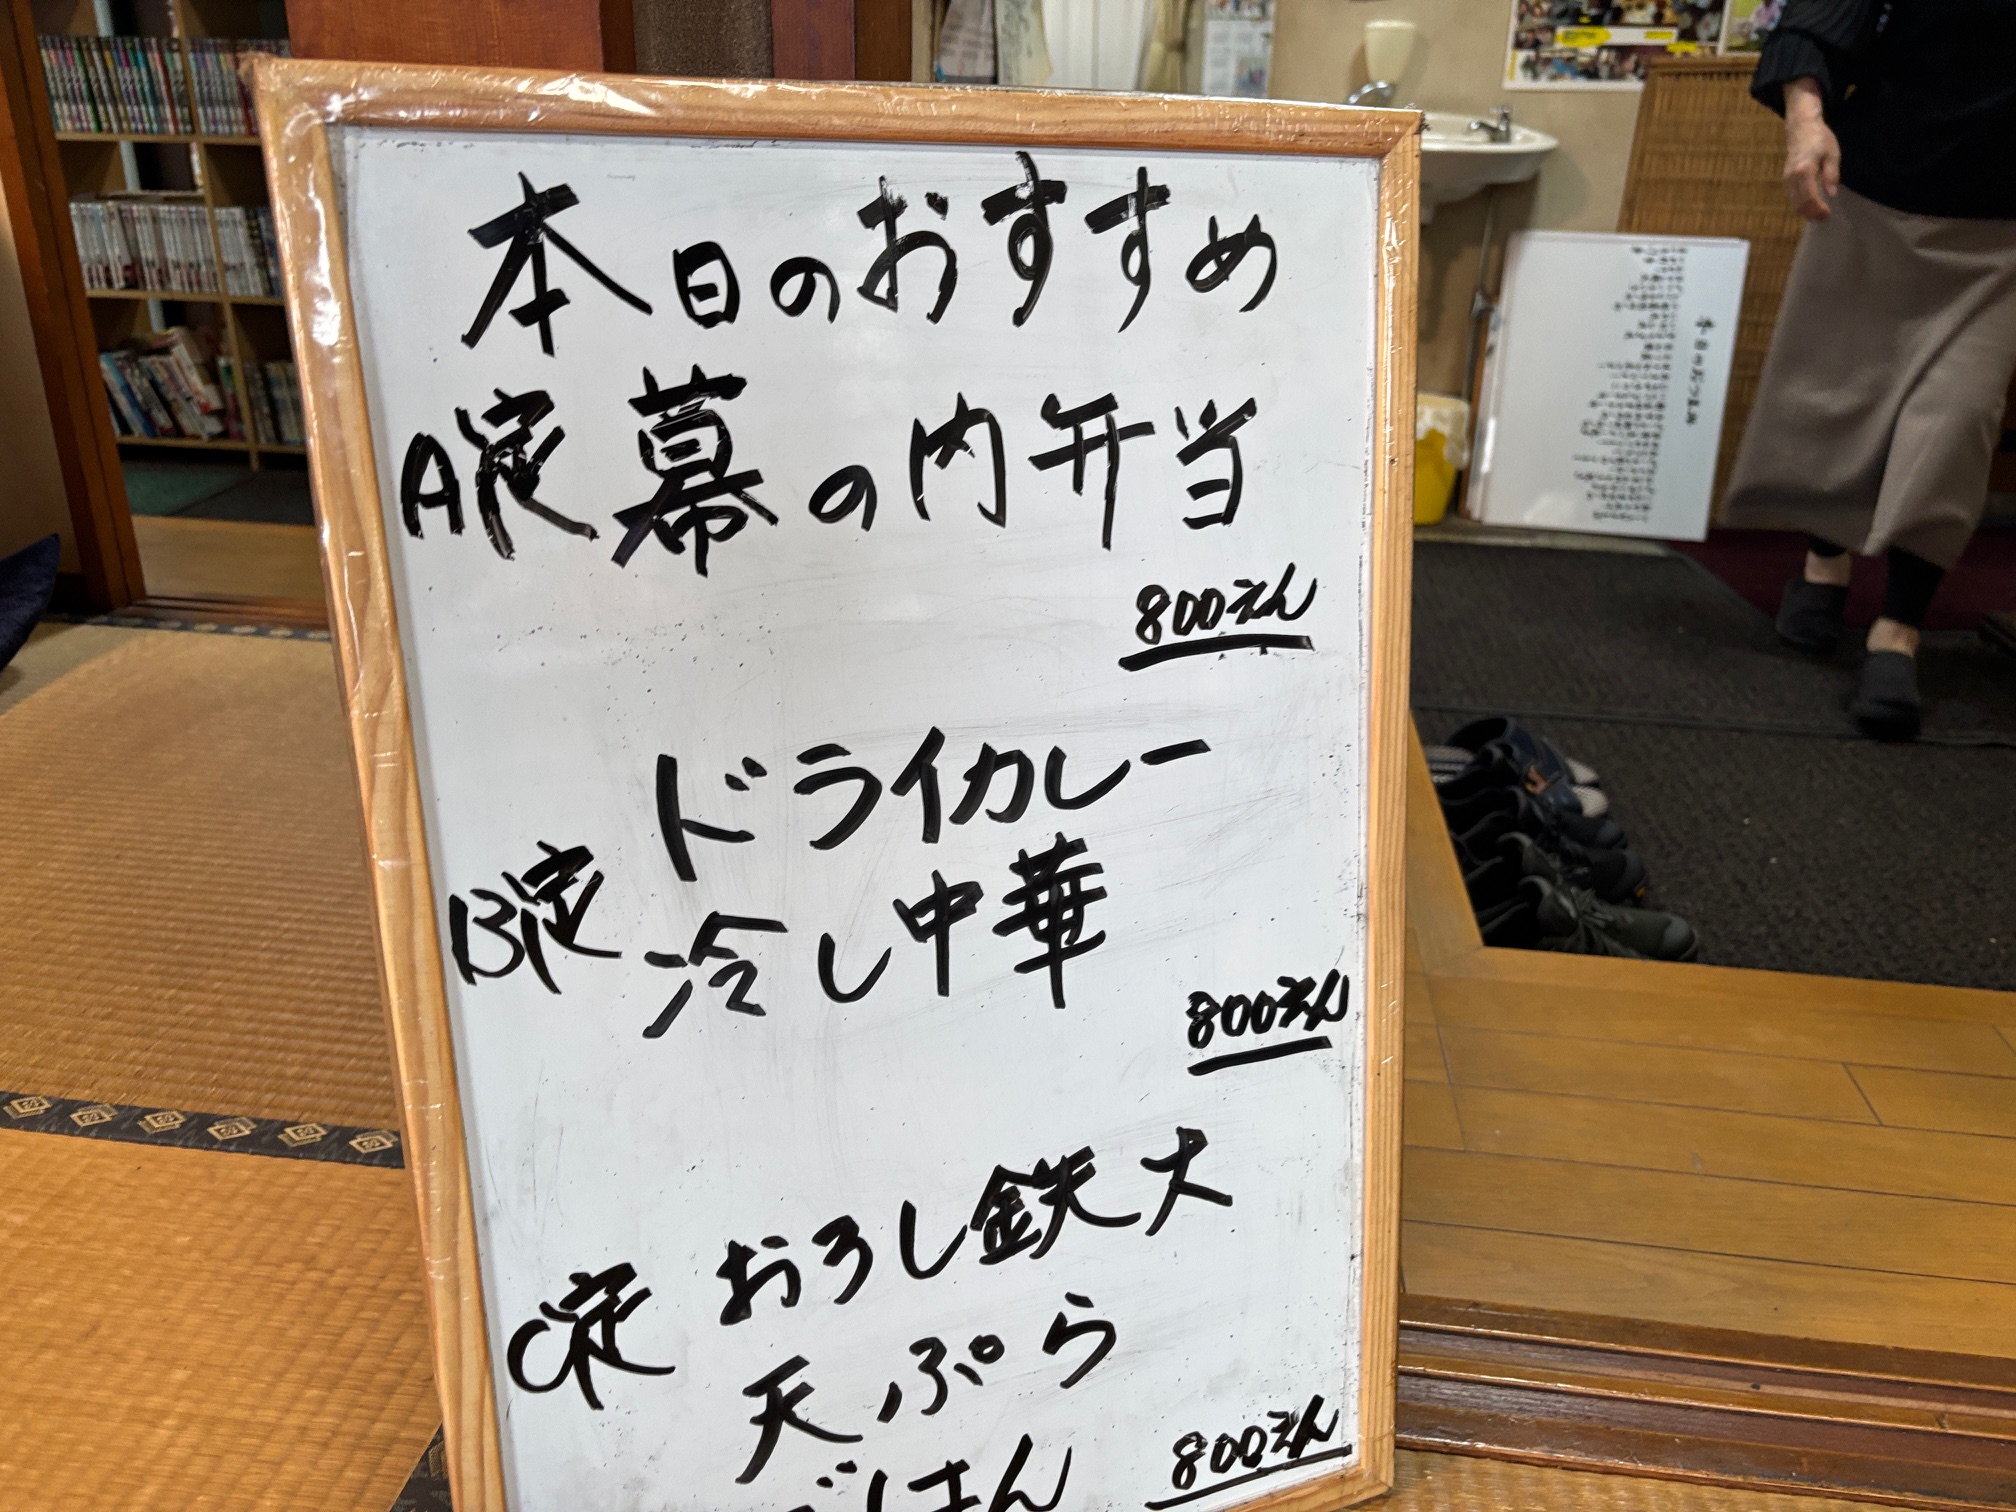 本日のおすすめ
A定 幕の内弁当
800えん
ドライカレー
B定 冷し中華
800えん
おろし鉄火
C定 天ぷら
ごはん 800えん